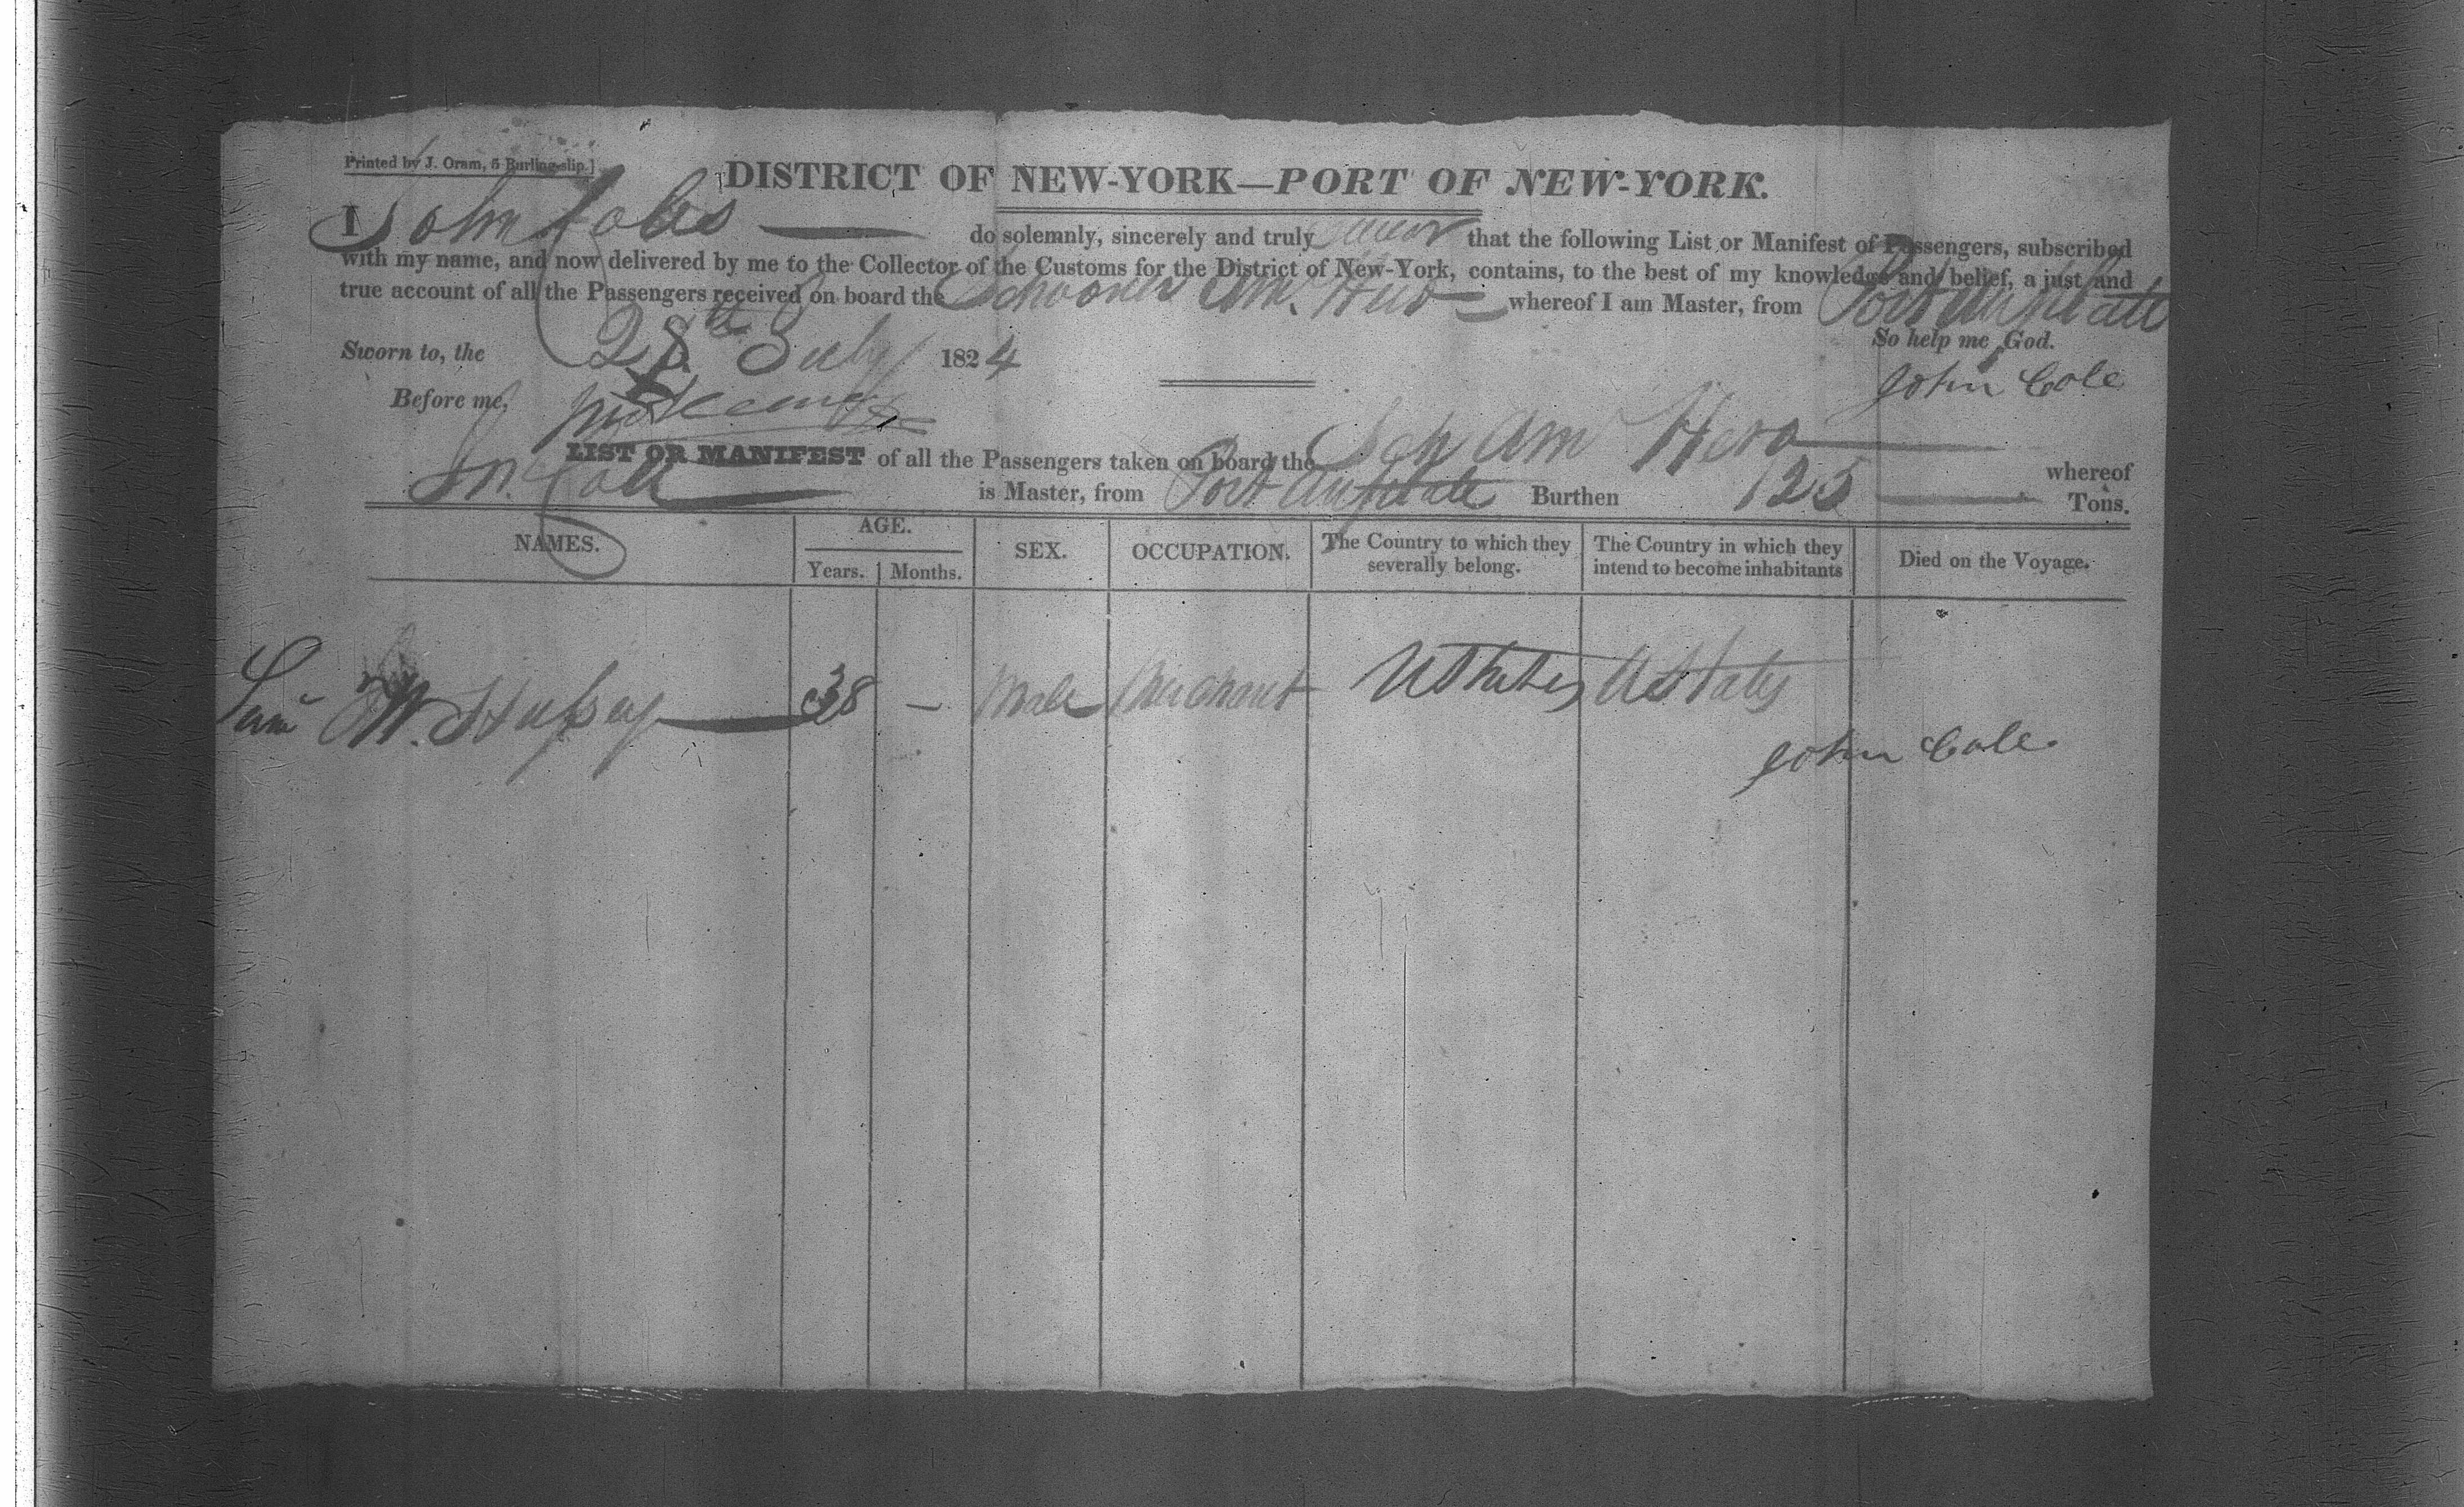 Printed by J. Oram, 5 Burling-slip.]
DISTRICT OF NEW-YORK—PORT OF NEW-YORK.
I John Coles do solemnly, sincerely and truly swear that the following List or Manifest of Passengers, subscribed
with my name, and now delivered by me to the Collector of the Customs for the District of New-York, contains, to the best of my knowledge and belief, a just and
true account of all the Passengers received on board the Schooner Amn Hero whereof I am Master, from Port au Platt
So help me God.
Sworn to, the 28th July 1824
John Cole
Before me,
LIST OR MANIFEST of all the Passengers taken on board the Sch Amn Hero whereof
Jn. Cole is Master, from Port au platte Burthen 125 Tons.
NAMES. AGE. Years. Months. SEX. OCCUPATION. The Country to which they severally belong. The Country in which they intend to become inhabitants Died on the Voyage.
Saml W. Hussey 38 — Male Merchant UStates UStates
John Cole